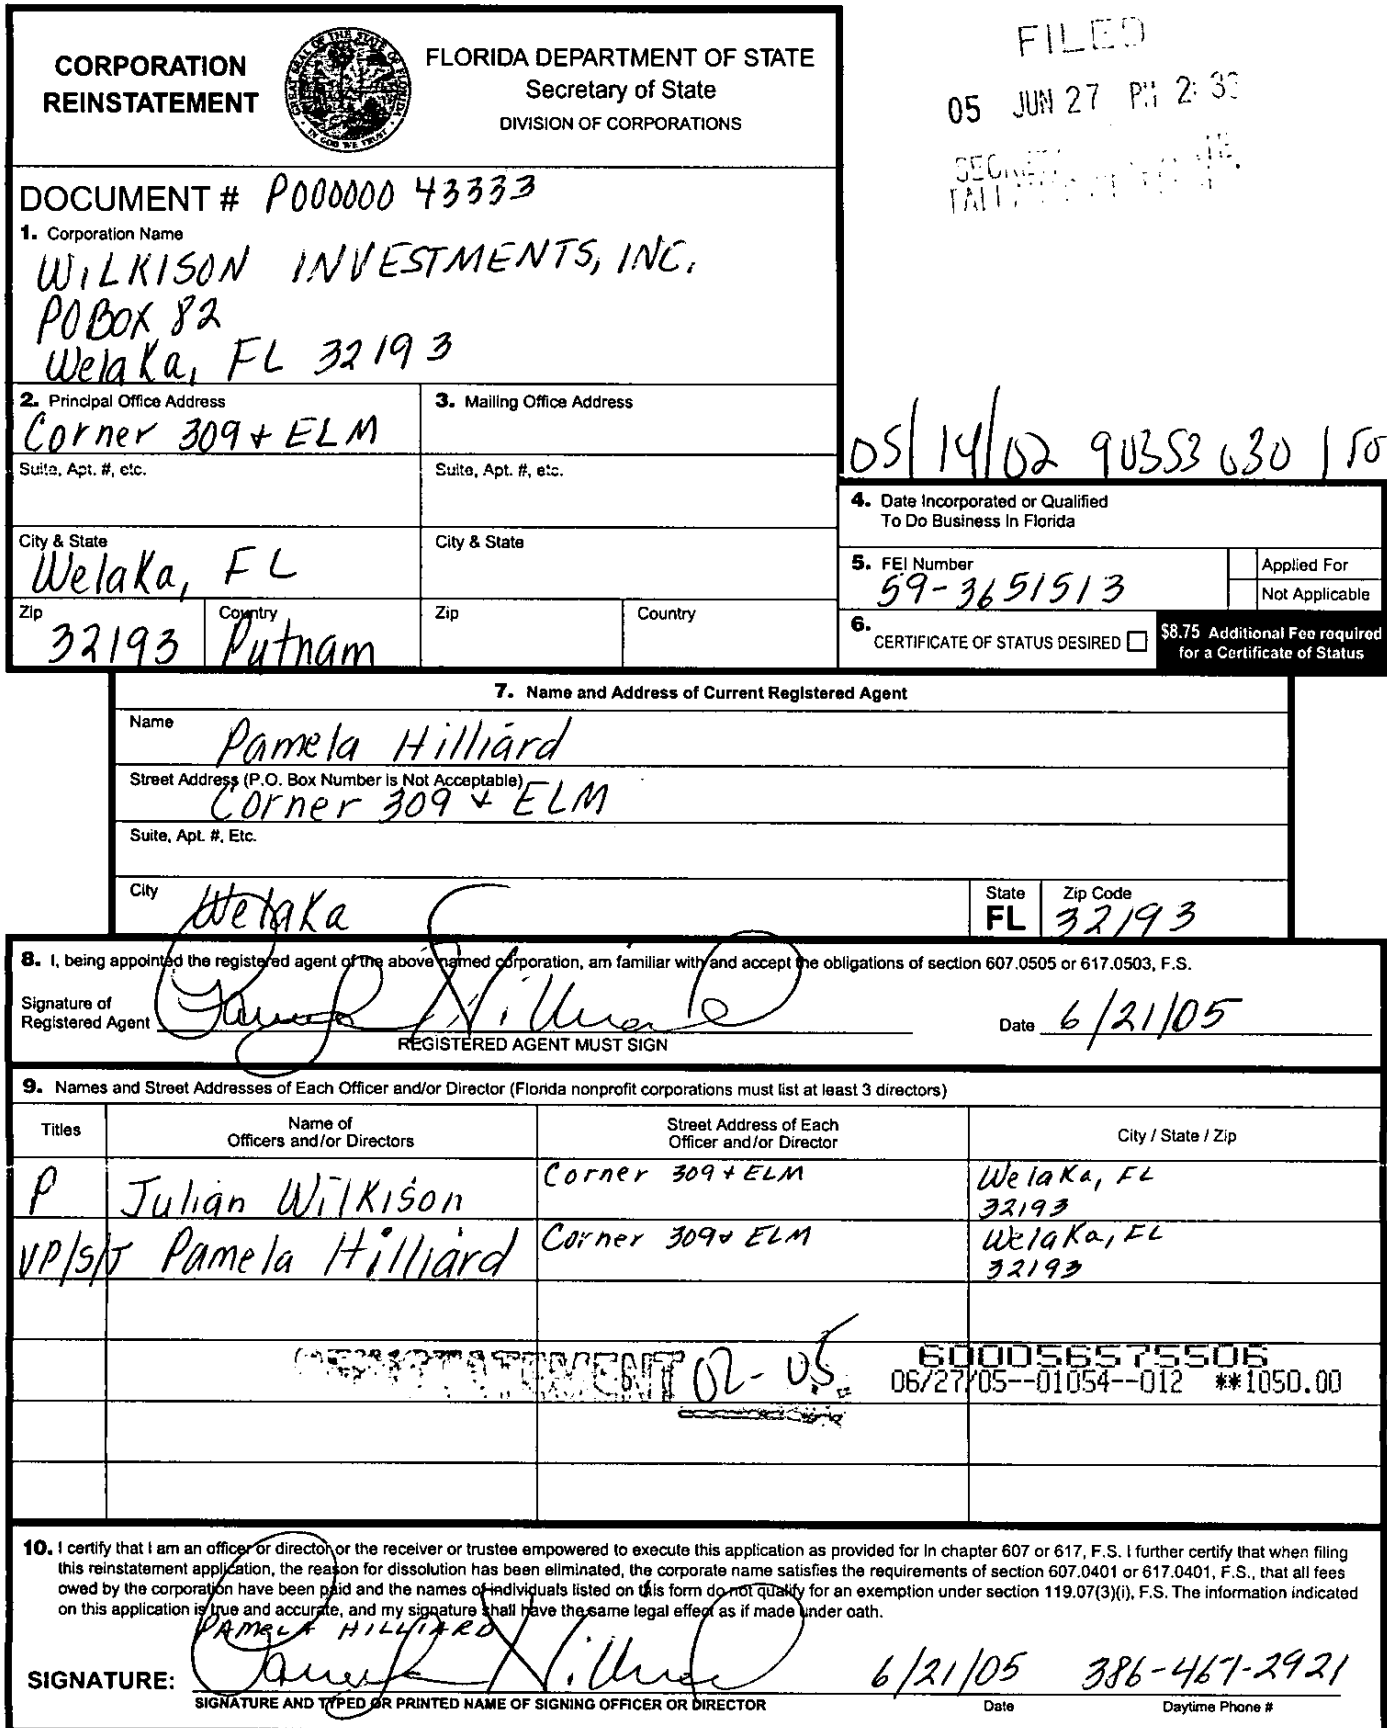 CORPORATION
REINSTATEMENT
GREAT SEAL OF THE STATE OF FLORIDA
IN GOD WE TRUST
FLORIDA DEPARTMENT OF STATE
Secretary of State
DIVISION OF CORPORATIONS
FILED
05 JUN 27 PM 2:33
DOCUMENT # P000000 43333
1. Corporation Name
WILKISON INVESTMENTS, INC.
PO BOX 82
Welaka, FL 32193
2. Principal Office Address
Corner 309 + ELM
3. Mailing Office Address
Suite, Apt. #, etc.
Suite, Apt. #, etc.
05/14/02 90353 030 150
4. Date Incorporated or Qualified
To Do Business In Florida
City & State
Welaka, FL
City & State
5. FEI Number
59-3651513
Applied For
Not Applicable
Zip
32193
Country
Putnam
Zip
Country
6. CERTIFICATE OF STATUS DESIRED
$8.75 Additional Fee required
for a Certificate of Status
7. Name and Address of Current Registered Agent
Name
Pamela Hilliard
Street Address (P.O. Box Number is Not Acceptable)
Corner 309 + ELM
Suite, Apt. #, Etc.
City
Welaka
State
FL
Zip Code
32193
8. I, being appointed the registered agent of the above named corporation, am familiar with and accept the obligations of section 607.0505 or 617.0503, F.S.
Signature of
Registered Agent
Pamela Hilliard
REGISTERED AGENT MUST SIGN
Date 6/21/05
9. Names and Street Addresses of Each Officer and/or Director (Florida nonprofit corporations must list at least 3 directors)
Titles
Name of
Officers and/or Directors
Street Address of Each
Officer and/or Director
City / State / Zip
P Julian Wilkison Corner 309 + ELM Welaka, FL
32193
VP/S/T Pamela Hilliard Corner 309 + ELM Welaka, FL
32193
REINSTATEMENT 02-05
600056575506
06/27/05--01054--012 **1050.00
10. I certify that I am an officer or director or the receiver or trustee empowered to execute this application as provided for in chapter 607 or 617, F.S. I further certify that when filing
this reinstatement application, the reason for dissolution has been eliminated, the corporate name satisfies the requirements of section 607.0401 or 617.0401, F.S., that all fees
owed by the corporation have been paid and the names of individuals listed on this form do not qualify for an exemption under section 119.07(3)(i), F.S. The information indicated
on this application is true and accurate, and my signature shall have the same legal effect as if made under oath.
PAMELA HILLIARD
SIGNATURE: Pamela Hilliard 6/21/05 386-467-2921
SIGNATURE AND TYPED OR PRINTED NAME OF SIGNING OFFICER OR DIRECTOR
Date
Daytime Phone #